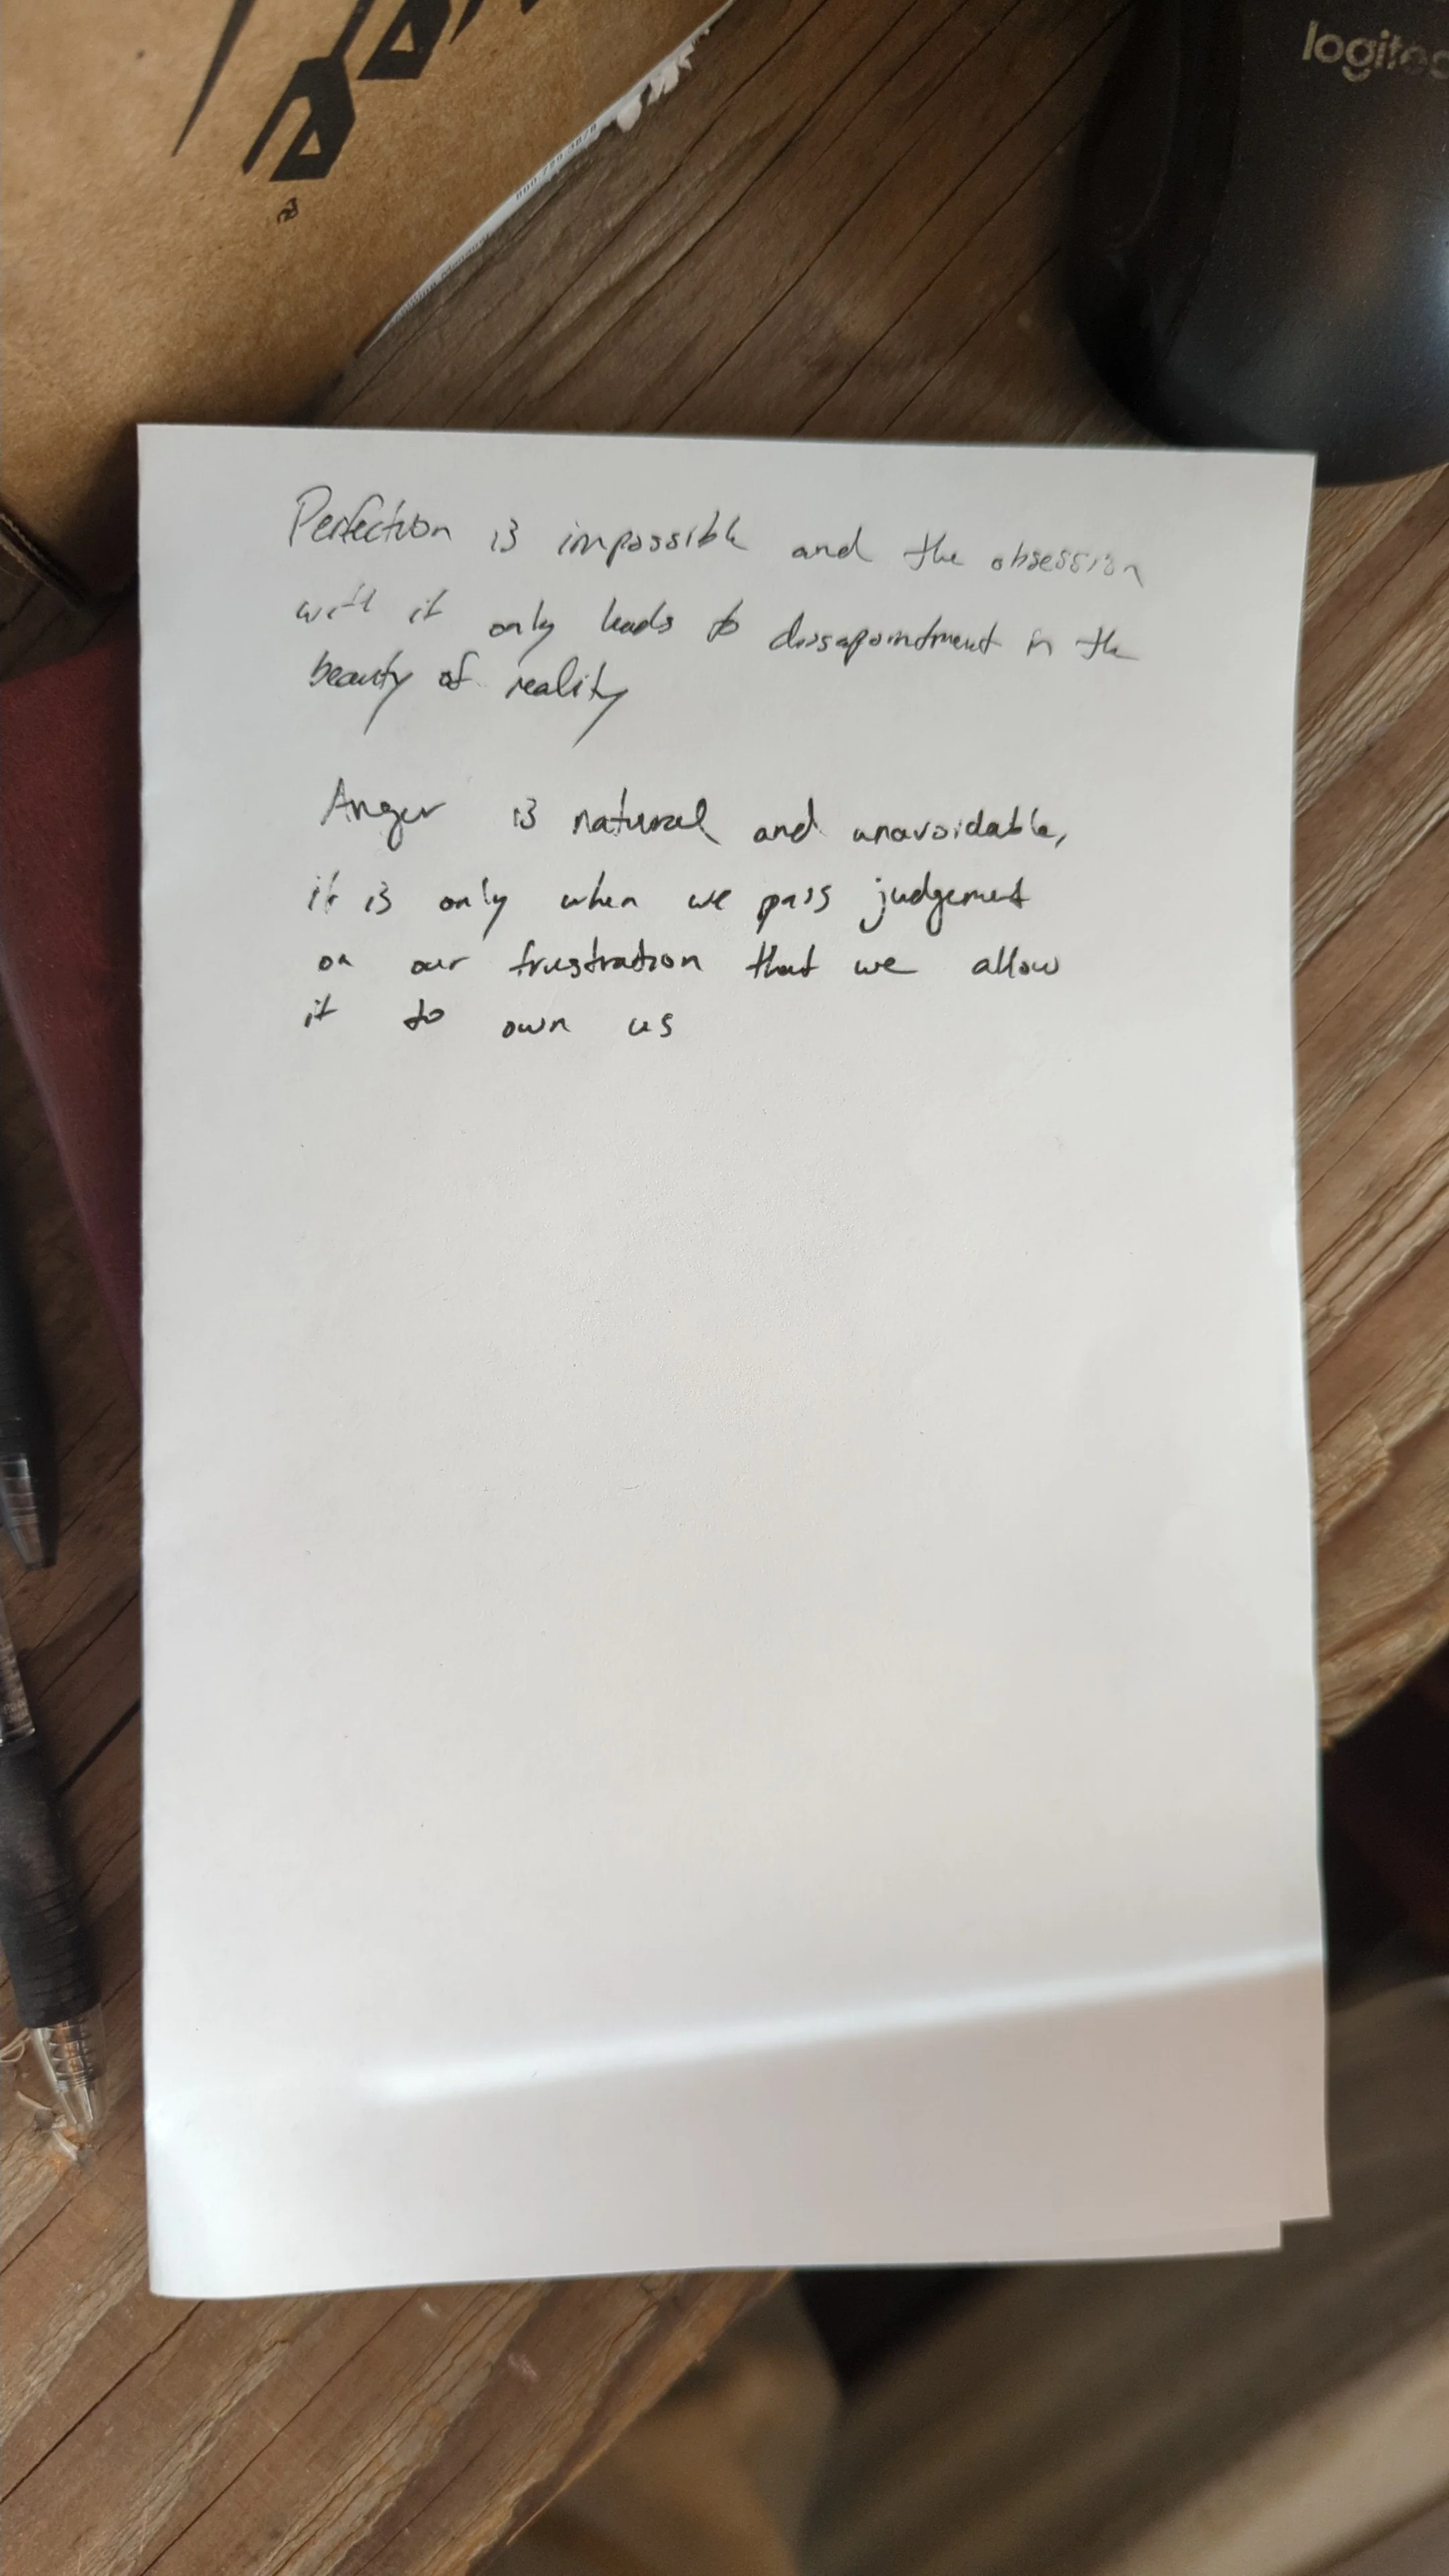 logitec
Perfection is impossible and the obsession
with it only leads to dissapointment in the
beauty of reality
Anger is natural and unavoidable,
it is only when we pass judgement
on our frustration that we allow
it to own us